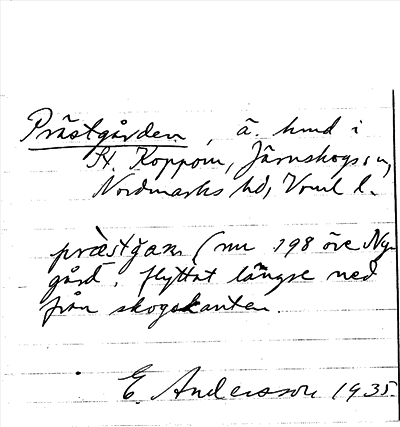 Prästgården, ä. hmd i
St. Koppom, Järnskogs sn,
Nordmarks hd, Vrml l.
præstgan (nu 198 öre Ny-
gård, flyttat längre ned
från skogskanten.
E. Andersson 1935.